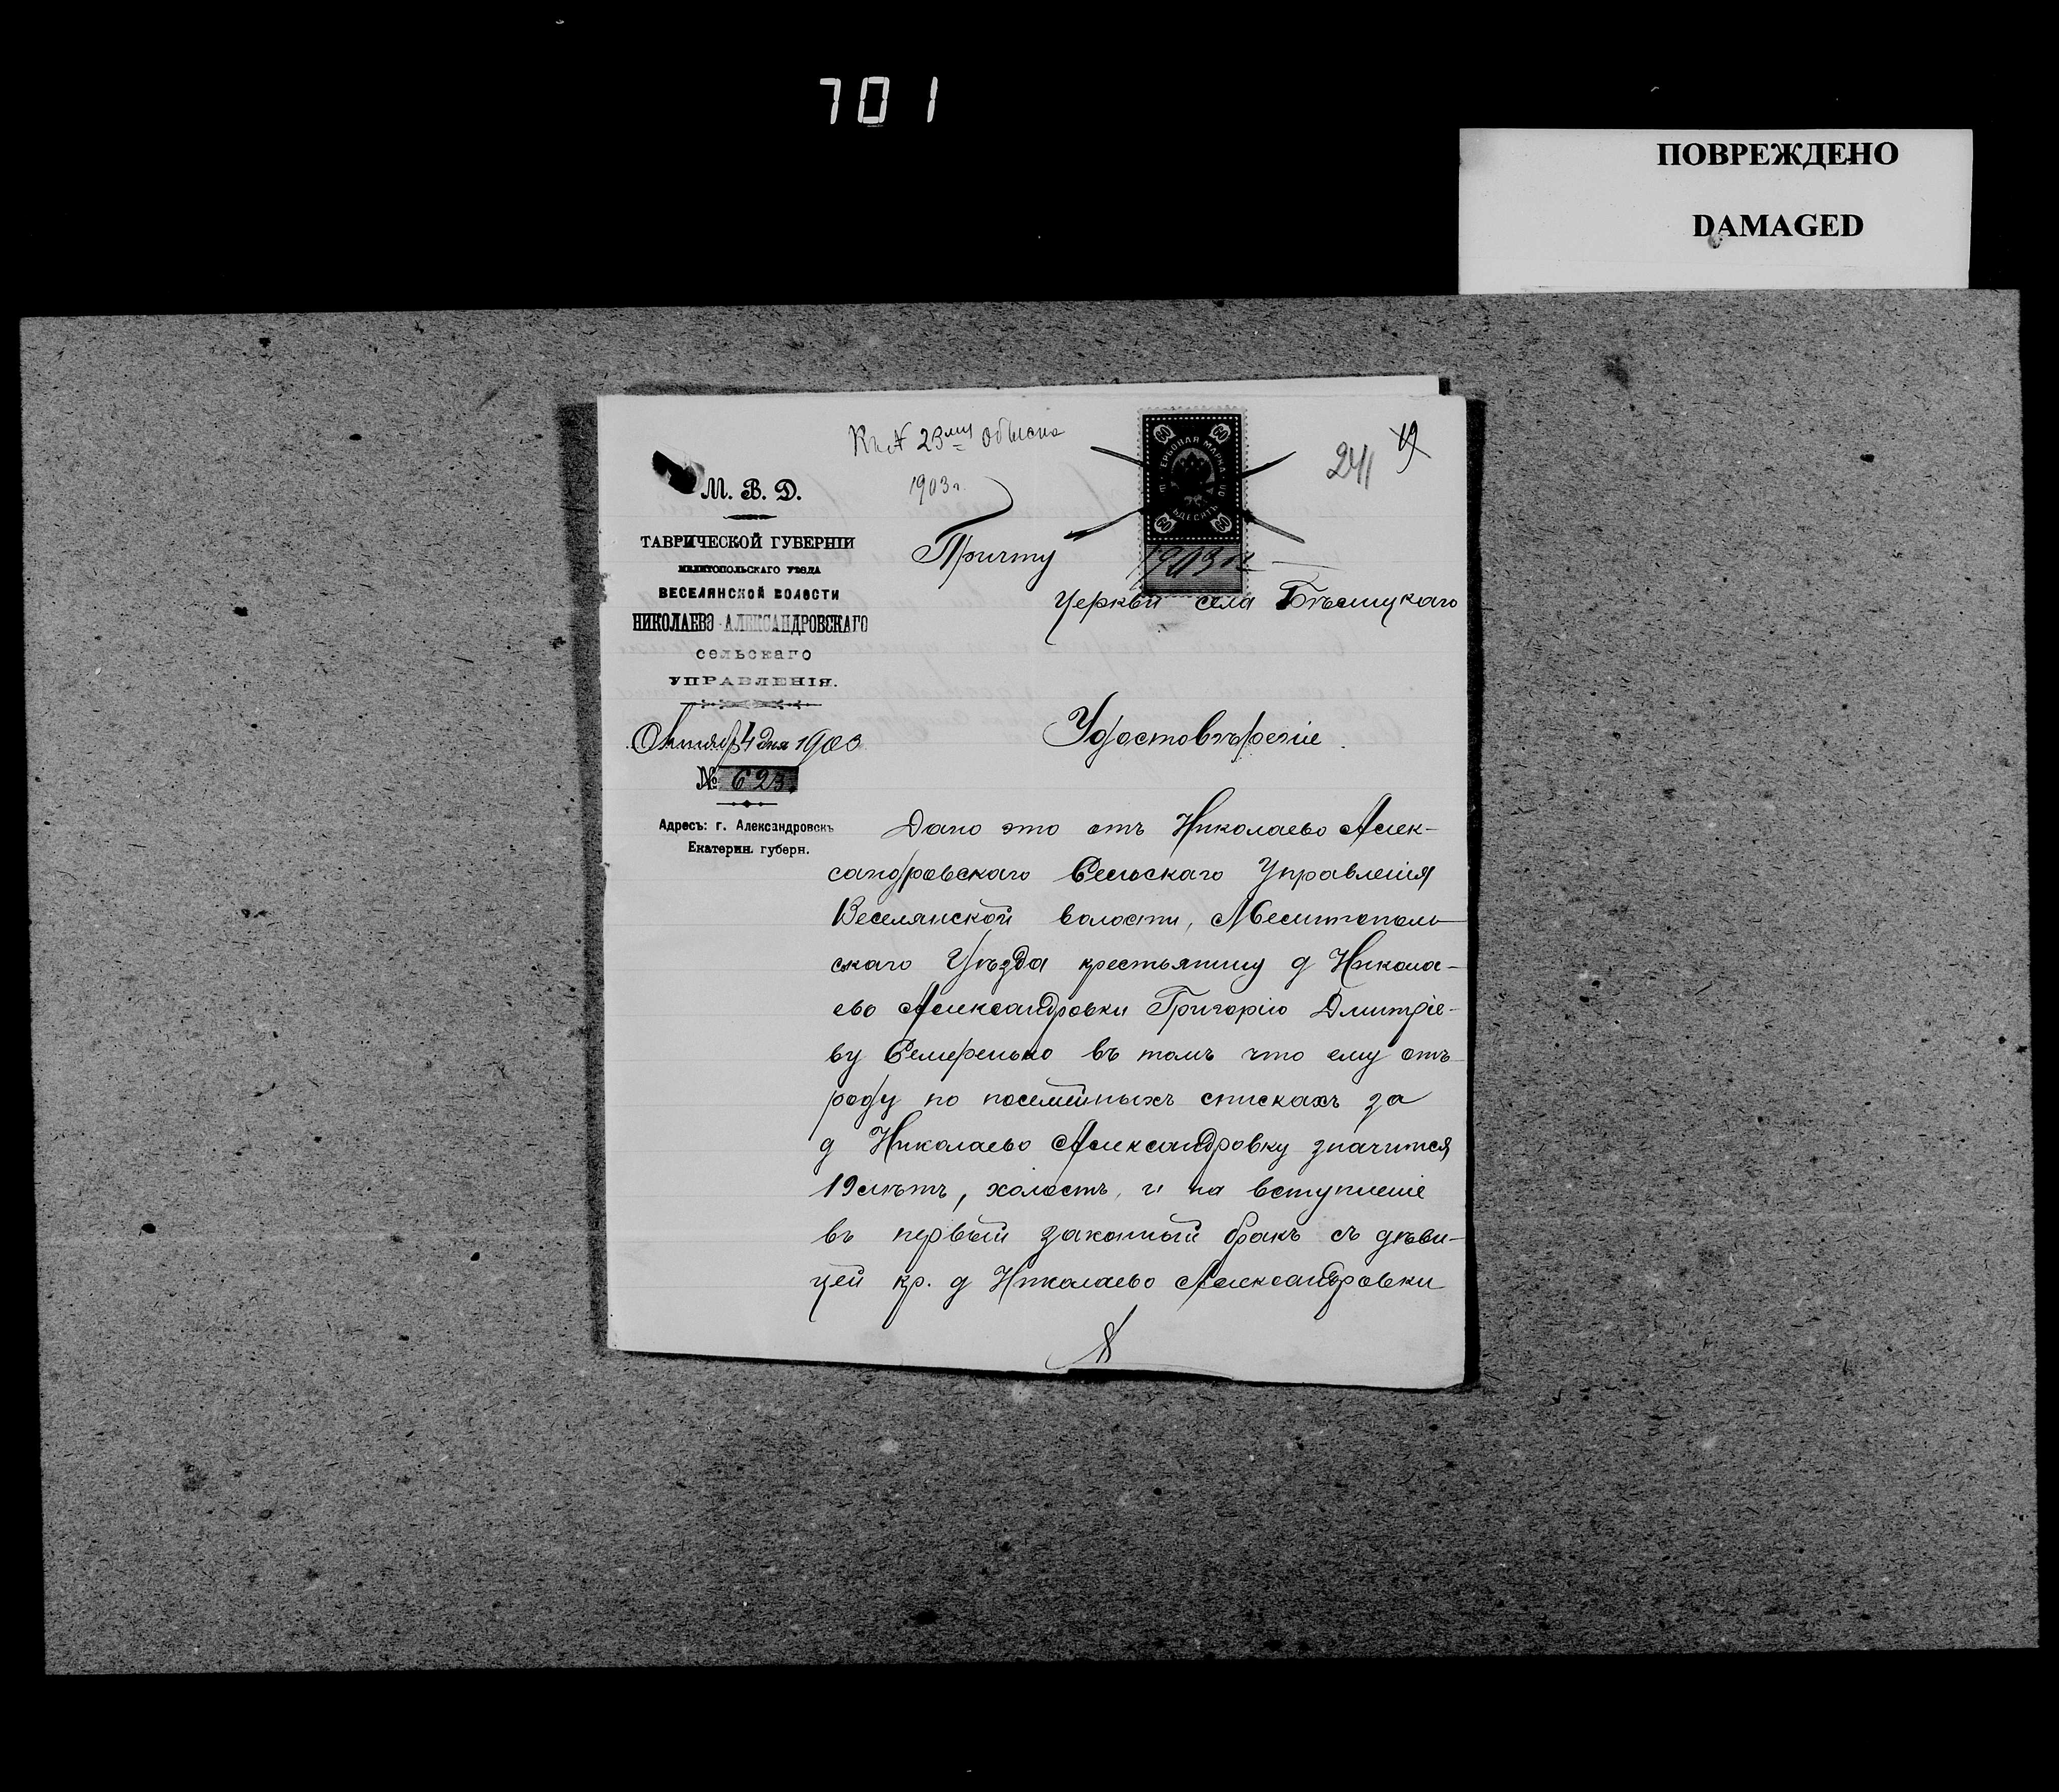 701
ПОВРЕЖДЕНО
DAMAGED
Къ № 23му обыска
1903 г.
241
19
М. В. Д.
ТАВРИЧЕСКОЙ ГУБЕРНІИ
МЕЛИТОПОЛЬСКАГО УѢЗДА
ВЕСЕЛЯНСКОЙ ВОЛОСТИ
НИКОЛАЕВО-АЛЕКСАНДРОВСКАГО
СЕЛЬСКАГО
УПРАВЛЕНІЯ.
Октября 4 дня 1903
№ 623.
Адресъ: г. Александровскъ
Екатерин. губерн.
60 60
ГЕРБОВАЯ МАРКА
60 60
1903 г.
Причту
Церкви села
Удостовѣреніе.
Дано это отъ Николаево Алек-
сандровскаго Сельскаго Управленія
Веселянской волости, Мелитополь-
скаго Уѣзда крестьянину д Никола-
ево Александровки Григорію Дмитріе-
ву Семеренько въ томъ что ему отъ
роду по посемейныхъ спискахъ за
д Николаево Александровку значится
19 лѣтъ, холостъ, и на вступленіе
въ первый законный бракъ съ дѣви-
цей кр. д Николаево Александровки